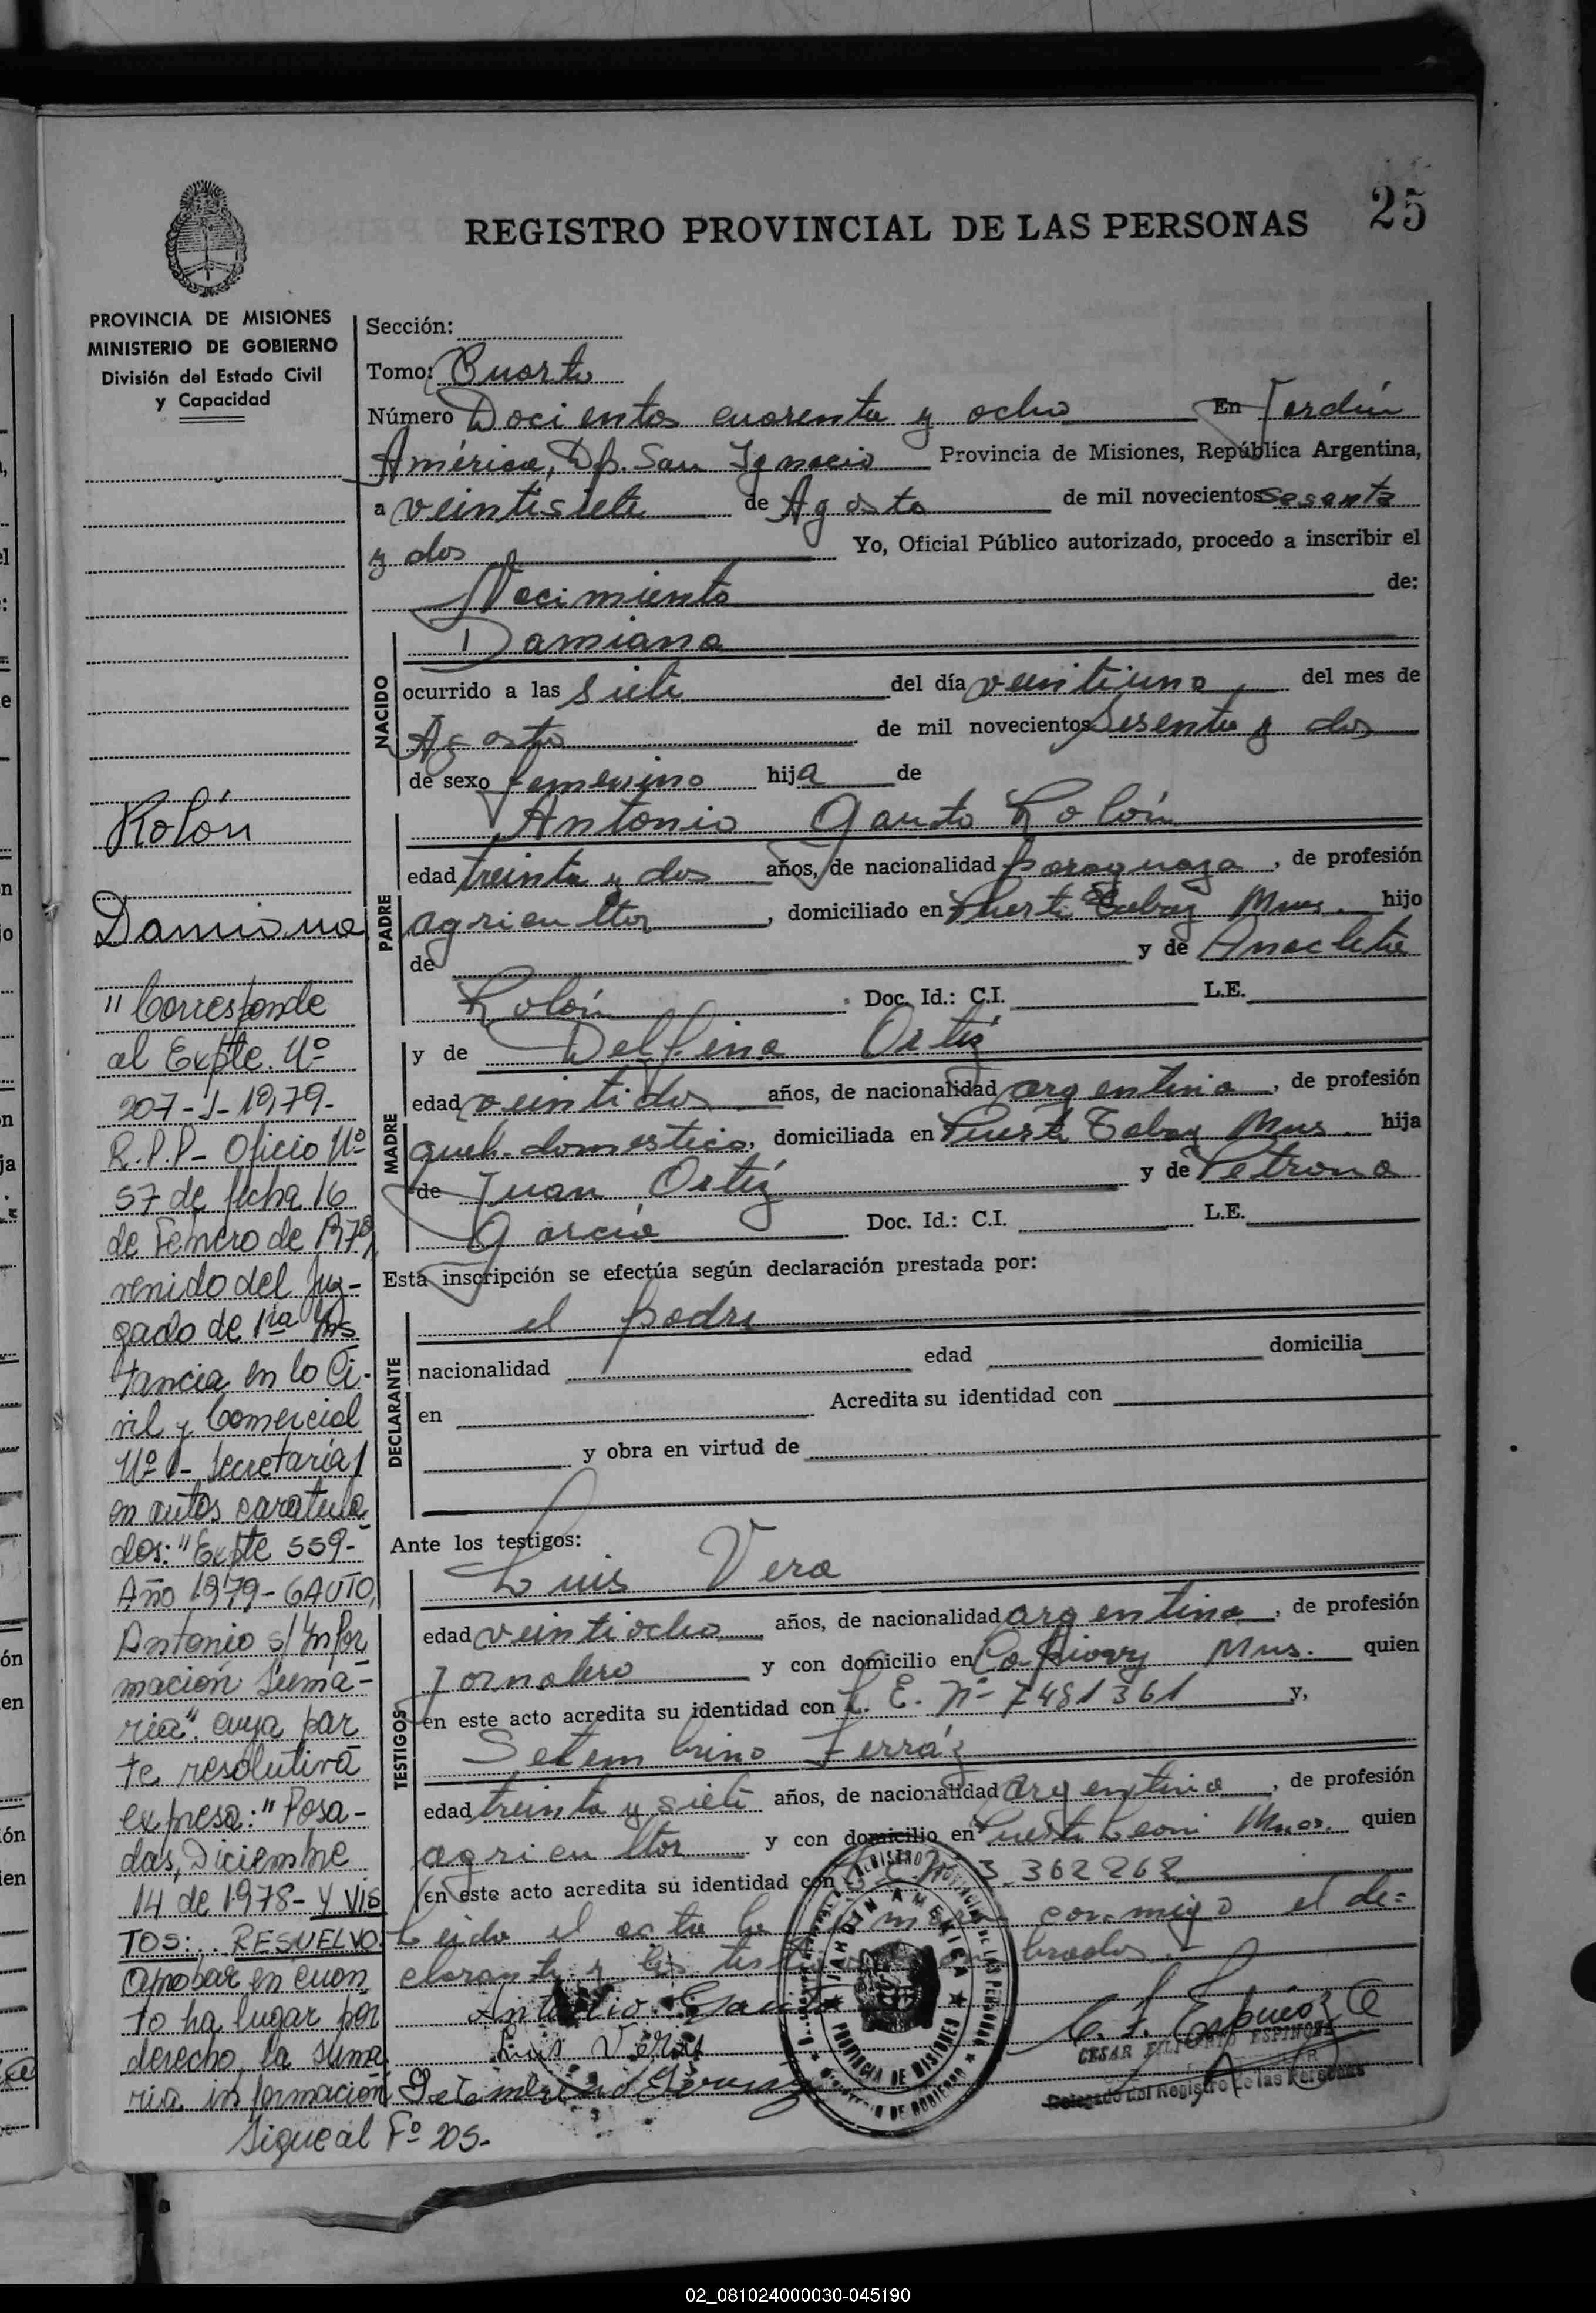 25
REGISTRO PROVINCIAL DE LAS PERSONAS
PROVINCIA DE MISIONES
MINISTERIO DE GOBIERNO
División del Estado Civil
y Capacidad
Sección:
Tomo: Cuarto
Número Docientos cuarenta y ocho En Jardín
América, Dp. San Ignacio Provincia de Misiones, República Argentina,
a veintisiete de Agosto de mil novecientos sesenta
y dos Yo, Oficial Público autorizado, procedo a inscribir el
Nacimiento de:
NACIDO
Damiana
ocurrido a las siete del día veintiuno del mes de
Agosto de mil novecientos sesenta y dos
de sexo femenino hija de
PADRE
Antonio Gauto Rolón
edad treinta y dos años, de nacionalidad paraguaya, de profesión
agricultor, domiciliado en Puerto Tabay Mnes. hijo
de y de Anacleta
Rolón Doc. Id.: C.I. L.E.
MADRE
y de Delfina Ortíz
edad veintidos años, de nacionalidad argentina, de profesión
queh. domestico, domiciliada en Puerto Tabay Mns. hija
de Juan Ortíz y de Petrona
García Doc. Id.: C.I. L.E.
Esta inscripción se efectúa según declaración prestada por:
DECLARANTE
el padre
nacionalidad edad domicilia
en Acredita su identidad con
y obra en virtud de
Ante los testigos:
TESTIGOS
Luis Vera
edad veintiocho años, de nacionalidad argentina, de profesión
Jornalero y con domicilio en Capiovy Mns. quien
en este acto acredita su identidad con L. E. Nº 7481361 y,
Setembrino Ferráz
edad treinta y siete años, de nacionalidad argentina, de profesión
agricultor y con domicilio en Puerto Leoni Mnes. quien
en este acto acredita su identidad con 3.362268
Leida el acta la conmigo el de=
clarante y los testigos
Antonio Gauto
Luis Vera
Setembrino Ferraz
C. F. Espínoza
CESAR FILIBERTO ESPINOZA
Delegado del Registro de las Personas
JARDIN AMERICA
PROVINCIA DE MISIONES
MINISTERIO DE GOBIERNO
Rolón
Damiana
"Corresponde
al Expte. Nº
207-J-1979-
R.P.P- Oficio Nº
57 de fecha 16
de Febrero de 1979,
venido del Juz-
gado de 1ra Ins
tancia en lo Ci-
vil y Comercial
Nº 1- Secretaría 1
en autos caratula
dos: "Expte 559-
Año 1979- GAUTO,
Antonio s/ Infor
mación Suma-
ria". cuya par
te resolutiva
expresa: "Posa-
das, Diciembre
14 de 1978- Y VIS
TOS:.. RESUELVO:
Aprobar en cuan
to ha lugar por
derecho, la suma
ria información
Sigue al Fº 205-
02_081024000030-045190